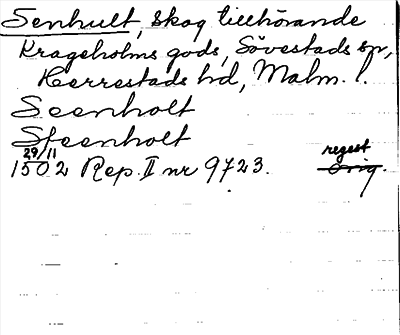 Senhult, skog tillhörande
Krageholms gods, Sövestads sn,
Herrestads hd, Malm. l.
Seenholt
Steenholt
29/11 regest
1502 Rep. II nr 9723. orig.